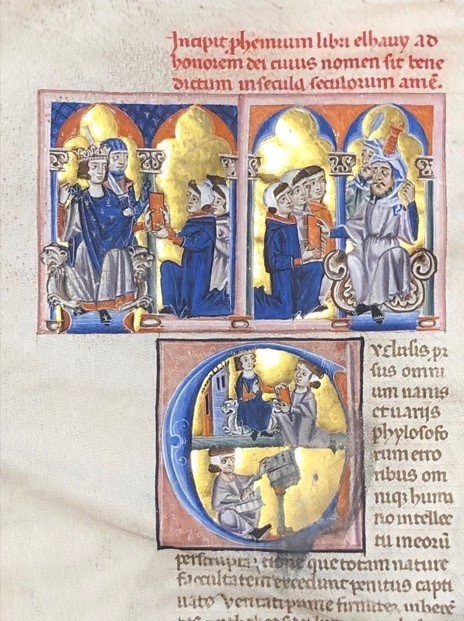 Incipit phemium libri elhauy ad
honorem dei cuius nomen sit bene
dictum in secula seculorum amē.
xclusis pr
sus omni
um uanis
et uarijs
phylosofo
rum erro
ribus om
niqȝ huma
no intellec
tu in eorū
que totam nature
facultatem excedunt penitus capti
uato ueritati prime firmiter inhere